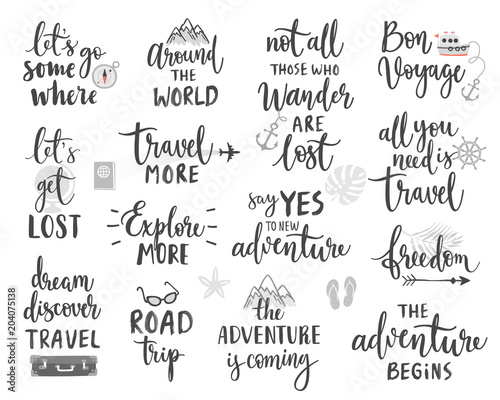 let's go
some
where
around
THE
WORLD
not all
THOSE WHO
Wander
ARE
lost
Bon
Voyage
let's
get
LOST
travel
MORE
all you
need is
travel
Explore
MORE
say YES
TO NEW
adventure
freedom
dream
discover
TRAVEL
ROAD
trip
the
ADVENTURE
is coming
THE
adventure
BEGINS
Adobe Stock | #204075138